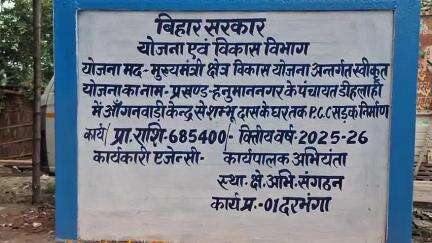 बिहार सरकार
योजना एवं विकास विभाग
योजना मद- मुख्यमंत्री क्षेत्र विकास योजना अन्तर्गत स्वीकृत
योजना का नाम- प्रखण्ड-हनुमाननगर के पंचायत डीहलाही
में आँगनवाड़ी केन्द्र से शम्भू दास के घर तक P.C.C सड़क निर्माण
कार्य/ प्रा. राशि-685400- वित्तीय वर्ष-2025-26
कार्यकारी एजेन्सी- कार्यपालक अभियंता
स्था. क्षे. अभि. संगठन
कार्य प्र.-01 दरभंगा